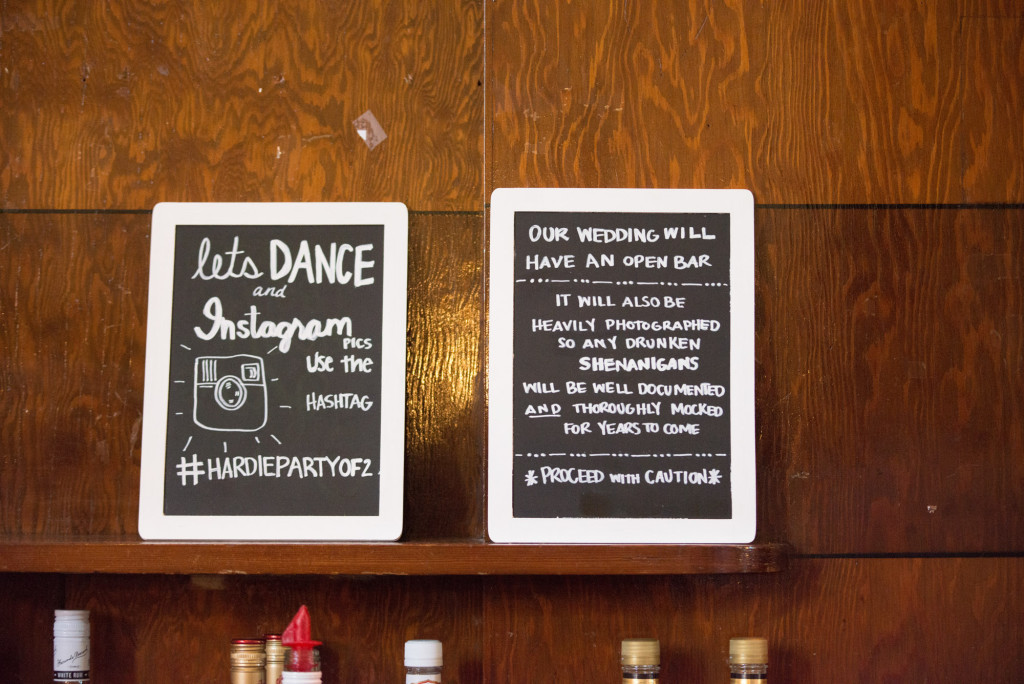 lets DANCE
and
Instagram
PICS
USE the
HASHTAG
#HARDIEPARTYOF2
OUR WEDDING WILL
HAVE AN OPEN BAR
IT WILL ALSO BE
HEAVILY PHOTOGRAPHED
SO ANY DRUNKEN
SHENANIGANS
WILL BE WELL DOCUMENTED
AND THOROUGHLY MOCKED
FOR YEARS TO COME
*PROCEED WITH CAUTION*
WHITE RUM